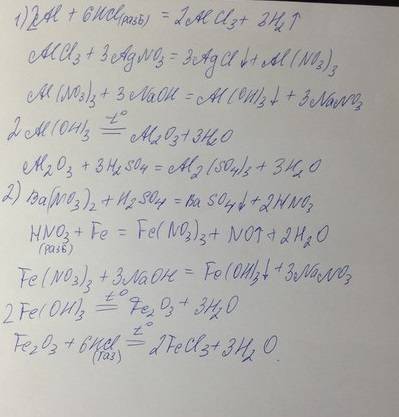 1) 2Al + 6HCl(разб) = 2AlCl3 + 3H2↑
AlCl3 + 3AgNO3 = 3AgCl↓ + Al(NO3)3
Al(NO3)3 + 3NaOH = Al(OH)3↓ + 3NaNO3
2Al(OH)3 =t°= Al2O3 + 3H2O
Al2O3 + 3H2SO4 = Al2(SO4)3 + 3H2O
2) Ba(NO3)2 + H2SO4 = BaSO4↓ + 2HNO3
HNO3(разб) + Fe = Fe(NO3)3 + NO↑ + 2H2O
Fe(NO3)3 + 3NaOH = Fe(OH)3↓ + 3NaNO3
2Fe(OH)3 =t°= Fe2O3 + 3H2O
Fe2O3 + 6HCl(газ) =t°= 2FeCl3 + 3H2O.